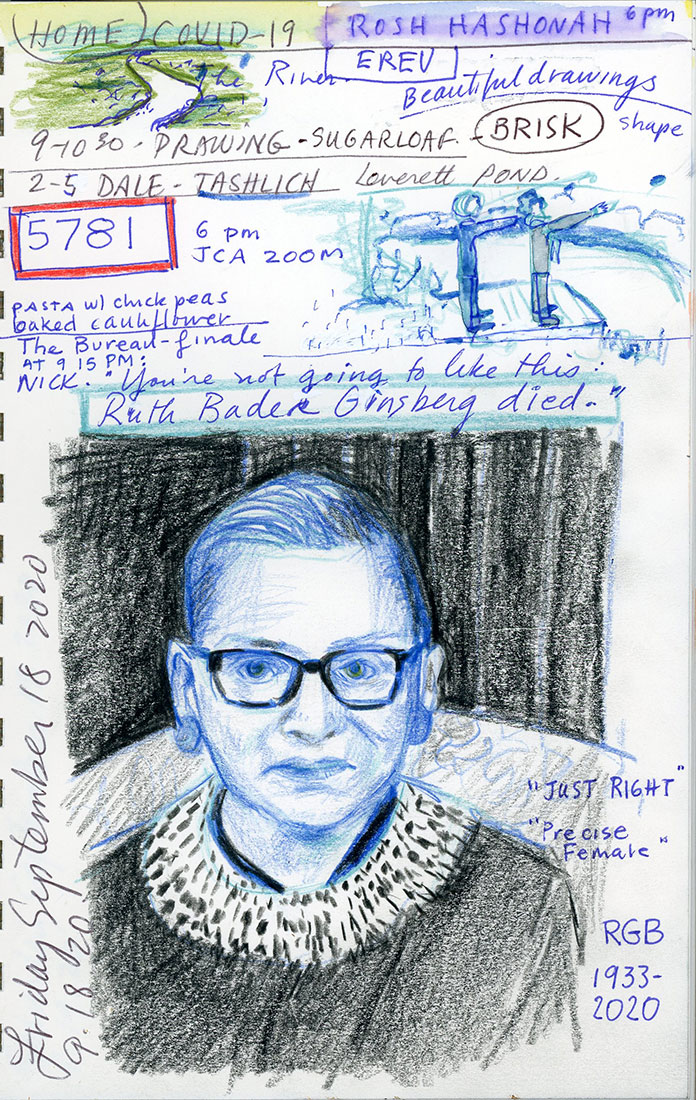 (HOME) COVID-19
ROSH HASHONAH 6 pm
EREV
The River
Beautiful drawings
9-10 30 - DRAWING - SUGARLOAF - BRISK
shape
2-5 DALE - TASHLICH Leverett POND.
5781
6 pm
JCA ZOOM
PASTA w/ chick peas
baked cauliflower
The Bureau - finale
AT 9 15 PM:
NICK. "You're not going to like this:
Ruth Bader Ginsberg died."
Friday September 18 2020
9.18.20
"JUST RIGHT"
"Precise
Female"
RGB
1933-
2020